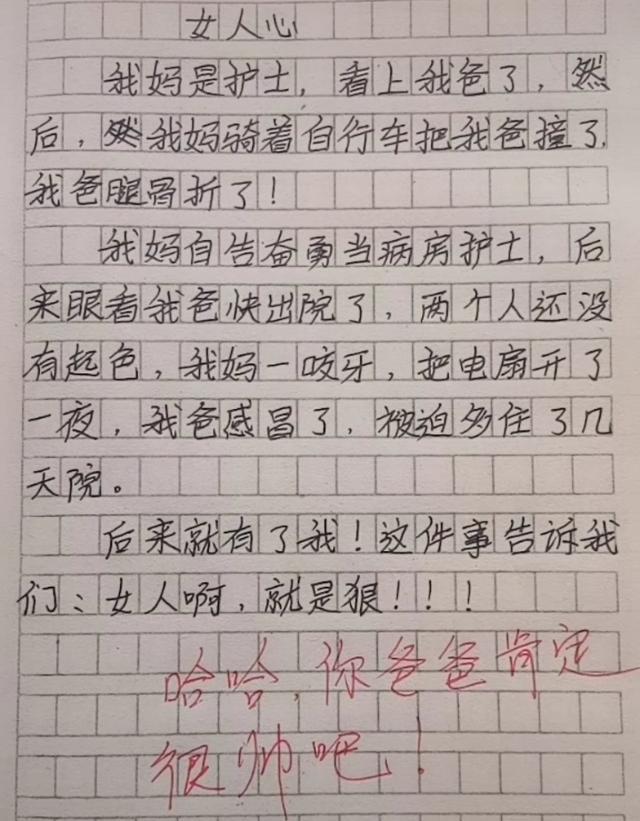 女人心
我妈是护士，看上我爸了，然
后，我妈骑着自行车把我爸撞了，
我爸腿骨折了！
我妈自告奋勇当病房护士，后
来眼看我爸快出院了，两个人还没
有起色，我妈一咬牙，把电扇开了
一夜，我爸感冒了，被迫多住了几
天院。
后来就有了我！这件事告诉我
们：女人啊，就是狠！！！
哈哈，你爸爸肯定
很帅吧！